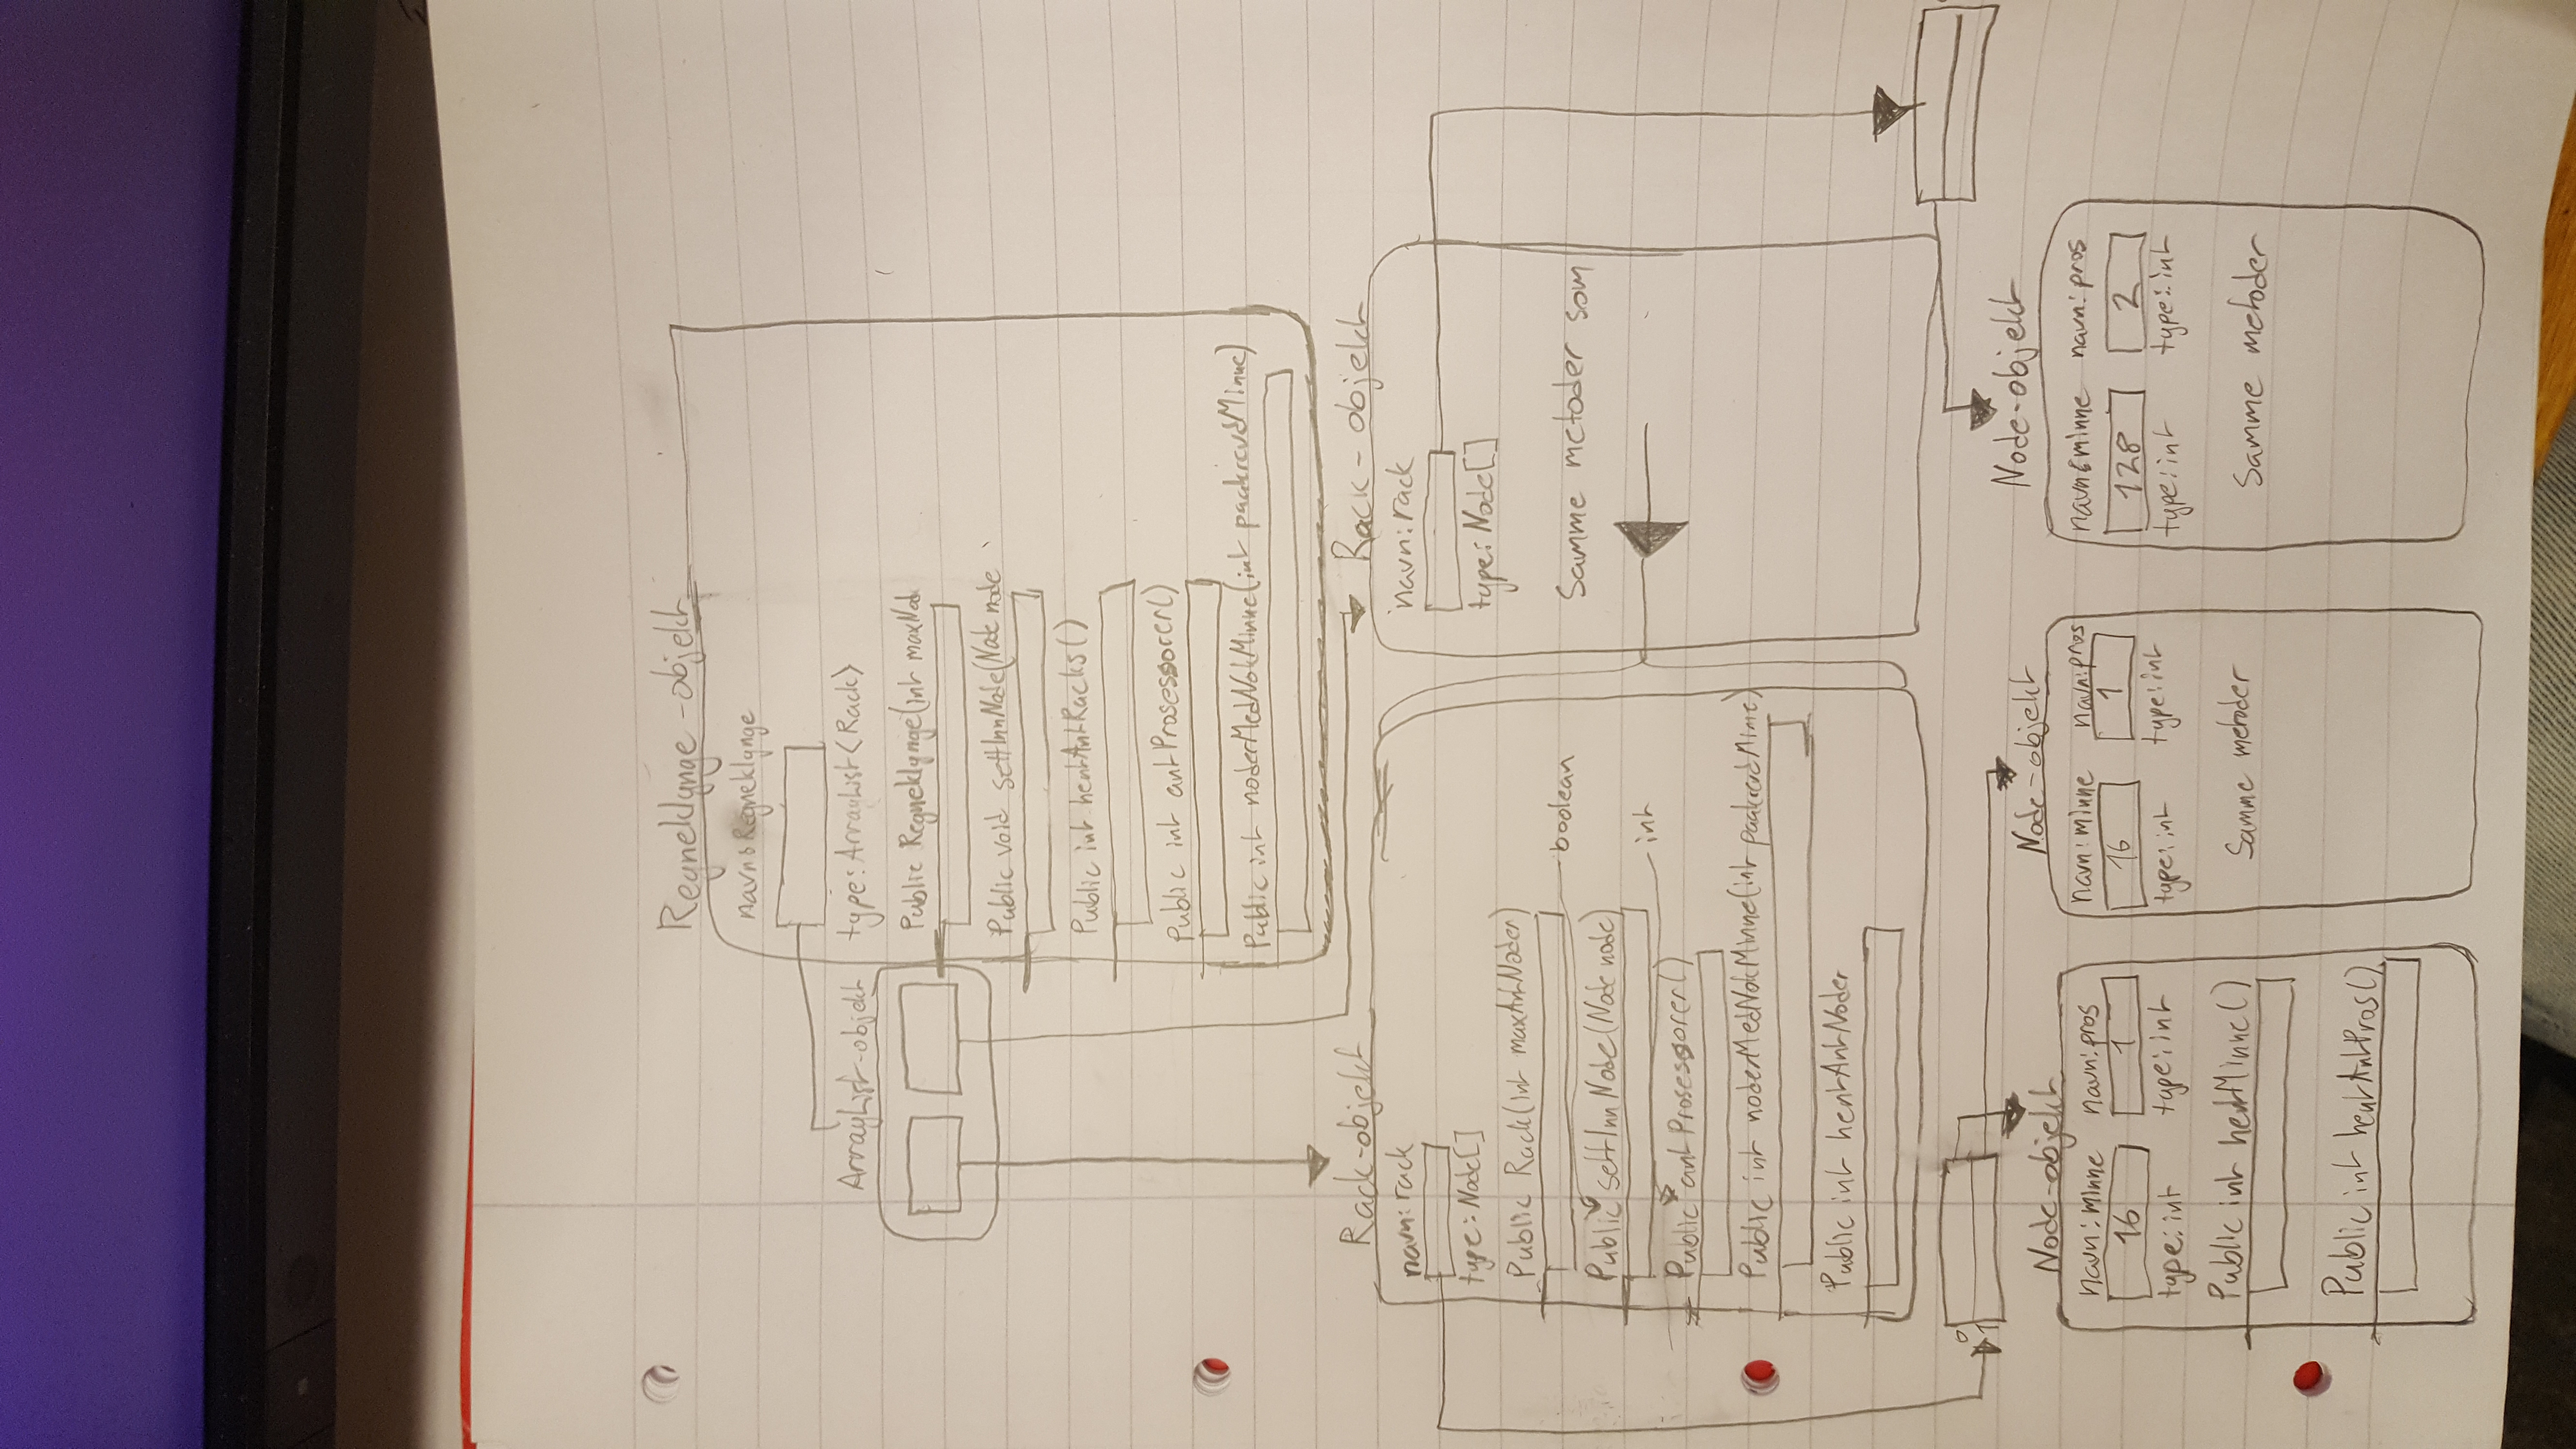 Regneklynge-objekt
navn: Regneklynge
type: ArrayList<Rack>
ArrayList-objekt
Public Regneklynge(int maxNod
Public void settInnNode(Node node
Public int hentAntRacks()
Public int antProsessorer()
Public int noderMedNokMinne(int paakrevdMinne)
Rack-objekt
navn: rack
type: Node[]
Public Rack(int maxAntNoder)
boolean
Public settInnNode(Node node)
int
Public antProsessorer()
Public int noderMedNokMinne(int paakrevdMinne)
Public int hentAntNoder
Rack-objekt
navn: rack
type: Node[]
Samme metoder som
0
1
Node-objekt
navn: minne navn: pros
16 1
type: int type: int
Public int hentMinne()
Public int hentAntPros()
Node-objekt
navn: minne navn: pros
16 1
type: int type: int
Samme metoder
Node-objekt
navn: minne navn: pros
128 2
type: int type: int
Samme metoder